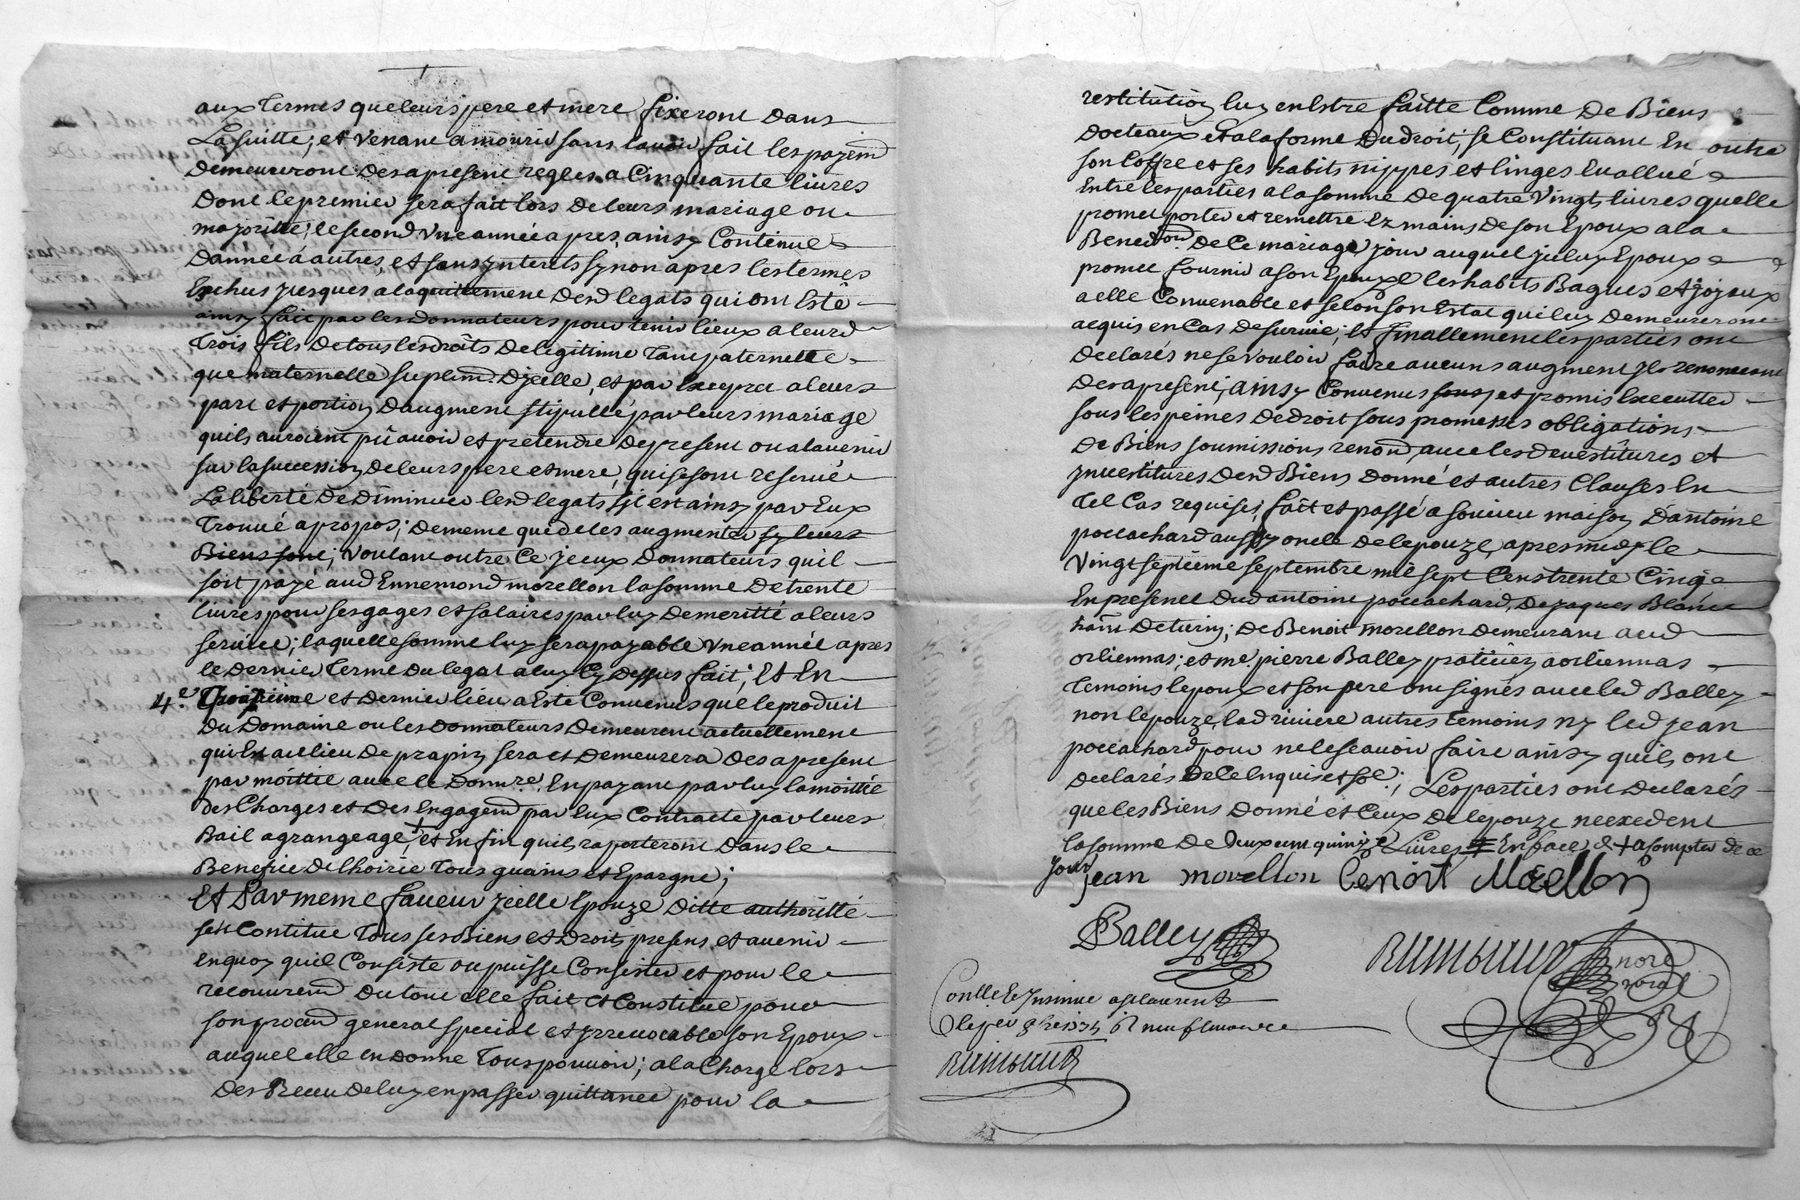 aux termes que leurs pere et mere fixeront dans
La suitte; et venant a mourir sans lavoir fait les payem
demeureront des a present regles a Cinquante livres
dont le premier sera fait lors de leurs mariage ou
majoritté, le second une année apres, ainsy Continué
dannée á autres, et sans ynterets synon apres les termes
Echus jusques a laquittement desd legats qui ont Esté
ainsy fait par les donnateurs pour tenir lieux a leursd
trois fils de tous les droits de legitime tant paternelle
que maternelle suplém. dycelle, et par Exeprez a leurs
part et portion daugment stipullé par leurs mariage
quils auroient pû avoir et pretendre de present ou a lavenir
sur la succession de leurs pere et mere, qui se sont reservé
La liberté de diminuer lesd legats sil est ainsy par Eux
trouvé a propos; de meme que de les augmenter sy leurs
Biens sont; voulant outre ce yceux donnateurs quil
soit payé aud Ennemond morellon la somme de trente
livres pour ses gages et salaires par luy demeritté a leurs
service; laquelle somme luy sera payable une année apres
le dernier terme du legat a luy Cy dessus fait; Et En
4.e et dernier lieu a Esté Convenus que le produit
du domaine ou les donnateurs demeurent actuellement
qui Est au lieu de prapin, sera et demeurera des a present
par moittie avec le donn.re, En payant par luy la moittié
des Charges et des Engagem par Eux Contracté par leurs
Bail a grangeage + et Enfin quils raporteront dans le
Benefice de lhoirie tous guains et Epargne;
Et Par meme faveur ycelle Epouze ditte authorittée
sest Contitué tous ses Biens et droits presens et avenir
En quoy quil Consiste ou puisse Consister et pour le
recouvrem du tout elle fait et Constitue pour
son procur general special et yrrevocable son Epoux
auquel elle en donne tous pouvoir; a la Charge lors
des Receu de luy en passer quittance pour la
restitution luy en Estre faitte Comme de Biens
docteaux et a la forme du droit; se Constituant En outre
son Coffre et ses habits nippes et linges Evallué
Entre les parties a la somme de quatre vingt livres quelle
promet porter et remettre Ez mains de son Epoux a la
Benedion de ce mariage, jour auquel yceluy Epoux
promet fournir a son Epouze les habits Bagues et joyaux
a elle Convenable et selon son Estat qui luy demeureront
acquis en Cas de survie; Et finallement les parties ont
declarés ne se vouloir faire aucuns augment yls renoncent
des a present; ainsy Convenus et promis Executter
sous les peines de droit sous promesses obligations
de Biens soumissions renon, avec les devestitures et
ynvestitures desd Biens donné et autres Clauses En
tel Cas requises, fait et passé a soucieu maison dantoine
poccachard aussy oncle de lepouze, apres midy le
vingt septieme septembre mil sept Cens trente Cinq
En presence dud antoine poccachard, de jaques Blanc
de turin; de Benoit morellon demeurant aud
orliennas; et me pierre Balley praticien a orliennas
temoins lepoux et son pere ont signés avec led Balley
non lepouze, lad riviere autres temoins ny led jean
poccachard pour ne le scavoir faire ainsy quils ont
declarés de Ce Enquis et so.e; Les parties ont declarés
que les Biens donné et Ceux de lepouze nexcedent
la somme de deux cent quinze Livres En face d + a compter de ce
jour jean morellon Benoit Morellon
Balley
Conlle et Insinué a st laurent